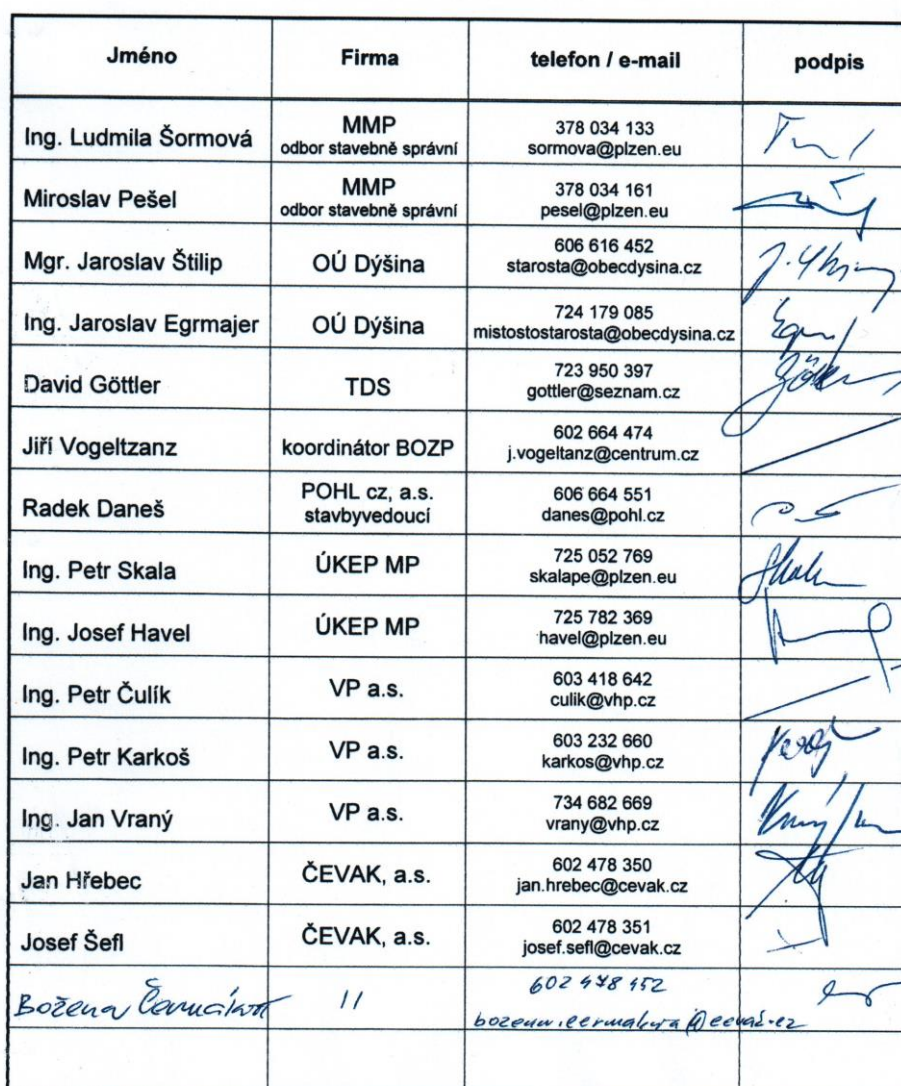 Jméno Firma telefon / e-mail podpis
Ing. Ludmila Šormová MMP 378 034 133
odbor stavebně správní sormova@plzen.eu
Miroslav Pešel MMP 378 034 161
odbor stavebně správní pesel@plzen.eu
Mgr. Jaroslav Štilip OÚ Dýšina 606 616 452
starosta@obecdysina.cz
Ing. Jaroslav Egrmajer OÚ Dýšina 724 179 085
mistostostarosta@obecdysina.cz
David Göttler TDS 723 950 397
gottler@seznam.cz
Jiří Vogeltzanz koordinátor BOZP 602 664 474
j.vogeltanz@centrum.cz
Radek Daneš POHL cz, a.s. 606 664 551
stavbyvedoucí danes@pohl.cz
Ing. Petr Skala ÚKEP MP 725 052 769
skalape@plzen.eu
Ing. Josef Havel ÚKEP MP 725 782 369
havel@plzen.eu
Ing. Petr Čulík VP a.s. 603 418 642
culik@vhp.cz
Ing. Petr Karkoš VP a.s. 603 232 660
karkos@vhp.cz
Ing. Jan Vraný VP a.s. 734 682 669
vrany@vhp.cz
Jan Hřebec ČEVAK, a.s. 602 478 350
jan.hrebec@cevak.cz
Josef Šefl ČEVAK, a.s. 602 478 351
josef.sefl@cevak.cz
Božena Čermáková 11 602 478